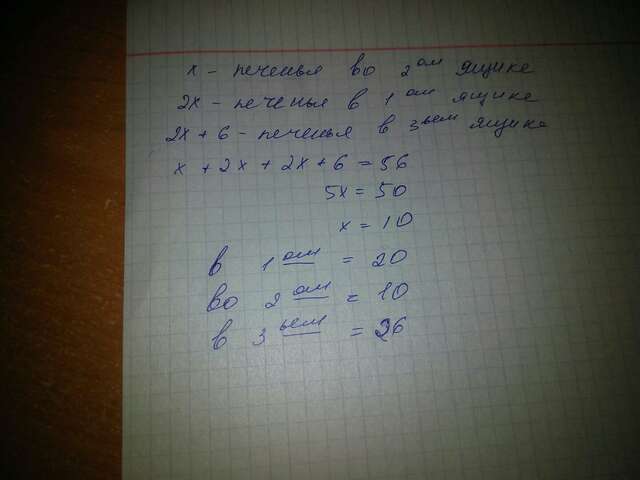 x - печенья во 2ом ящике
2x - печенья в 1ом ящике
2x + 6 - печенья в 3ьем ящике
x + 2x + 2x + 6 = 56
5x = 50
x = 10
в 1ом = 20
во 2ом = 10
в 3ьем = 26